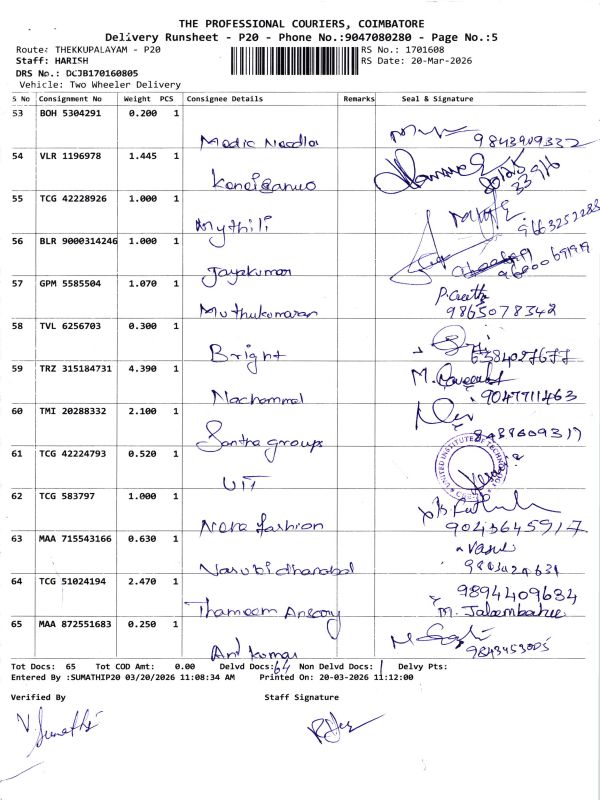 THE PROFESSIONAL COURIERS, COIMBATORE
Delivery Runsheet - P20 - Phone No.:9047080280 - Page No.:5
Route: THEKKUPALAYAM - P20 RS No.: 1701608
Staff: HARISH RS Date: 20-Mar-2026
DRS No.: DCJB170160805
Vehicle: Two Wheeler Delivery
S No Consignment No Weight PCS Consignee Details Remarks Seal & Signature
53 BOH 5304291 0.200 1
9843909332
54 VLR 1196978 1.445 1
55 TCG 42228926 1.000 1
Mythili 9663252288
56 BLR 9000314246 1.000 1
Jayakumar
57 GPM 5585504 1.070 1
Muthukumaran 9865078342
58 TVL 6256703 0.300 1
Bright
59 TRZ 315184731 4.390 1
Nachammal 9047711463
60 TMI 20288332 2.100 1
Santha groups 8438609317
61 TCG 42224793 0.520 1
UNITED INSTITUTE OF TECHNOLOGY
UIT
62 TCG 583797 1.000 1
fashion 9043645917
63 MAA 715543166 0.630 1
Vasu
64 TCG 51024194 2.470 1
9894409634
Thameem Ansary
65 MAA 872551683 0.250 1
Anil kumar 9843453005
Tot Docs: 65 Tot COD Amt: 0.00 Delvd Docs: 64 Non Delvd Docs: 1 Delvy Pts:
Entered By :SUMATHIP20 03/20/2026 11:08:34 AM Printed On: 20-03-2026 11:12:00
Verified By Staff Signature
V. Sumathi